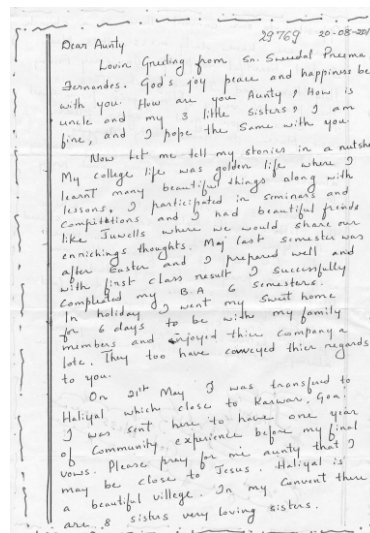 29769 20-08-201
Dear Aunty
Lovin Greeting from Sr. Sweedal Preema
Fernandes. God's joy peace and happiness be
with you. How are you Aunty, How is
uncle and my 3 little Sisters, I am
fine, and I hope the Same with you.
Now let me tell my stories in a nutshe
My college life was golden life where I
learnt many beautiful things along with
lessons. I participated in Siminars and
Compititions and I had beautiful friends
like Juwells where we would share our
enrichings thoughts. My last Semester was
after Easter and I prepared well and
with first class result I successfully
completed my B.A 6 Semesters.
In holiday I went my sweet home
for 6 days to be with my family
members and enjoyed thier company a
lote. They too have conveyed thier regards
to you.
On 21st May I was transfered to
Haliyal which close to Karwar, Goa.
I was sent here to have one year
of Community experience before my final
vows. Please pray for me aunty that I
may be close to Jesus. Haliyal is
a beautiful villege. In my Convent there
are 8 sisters very loving sisters.